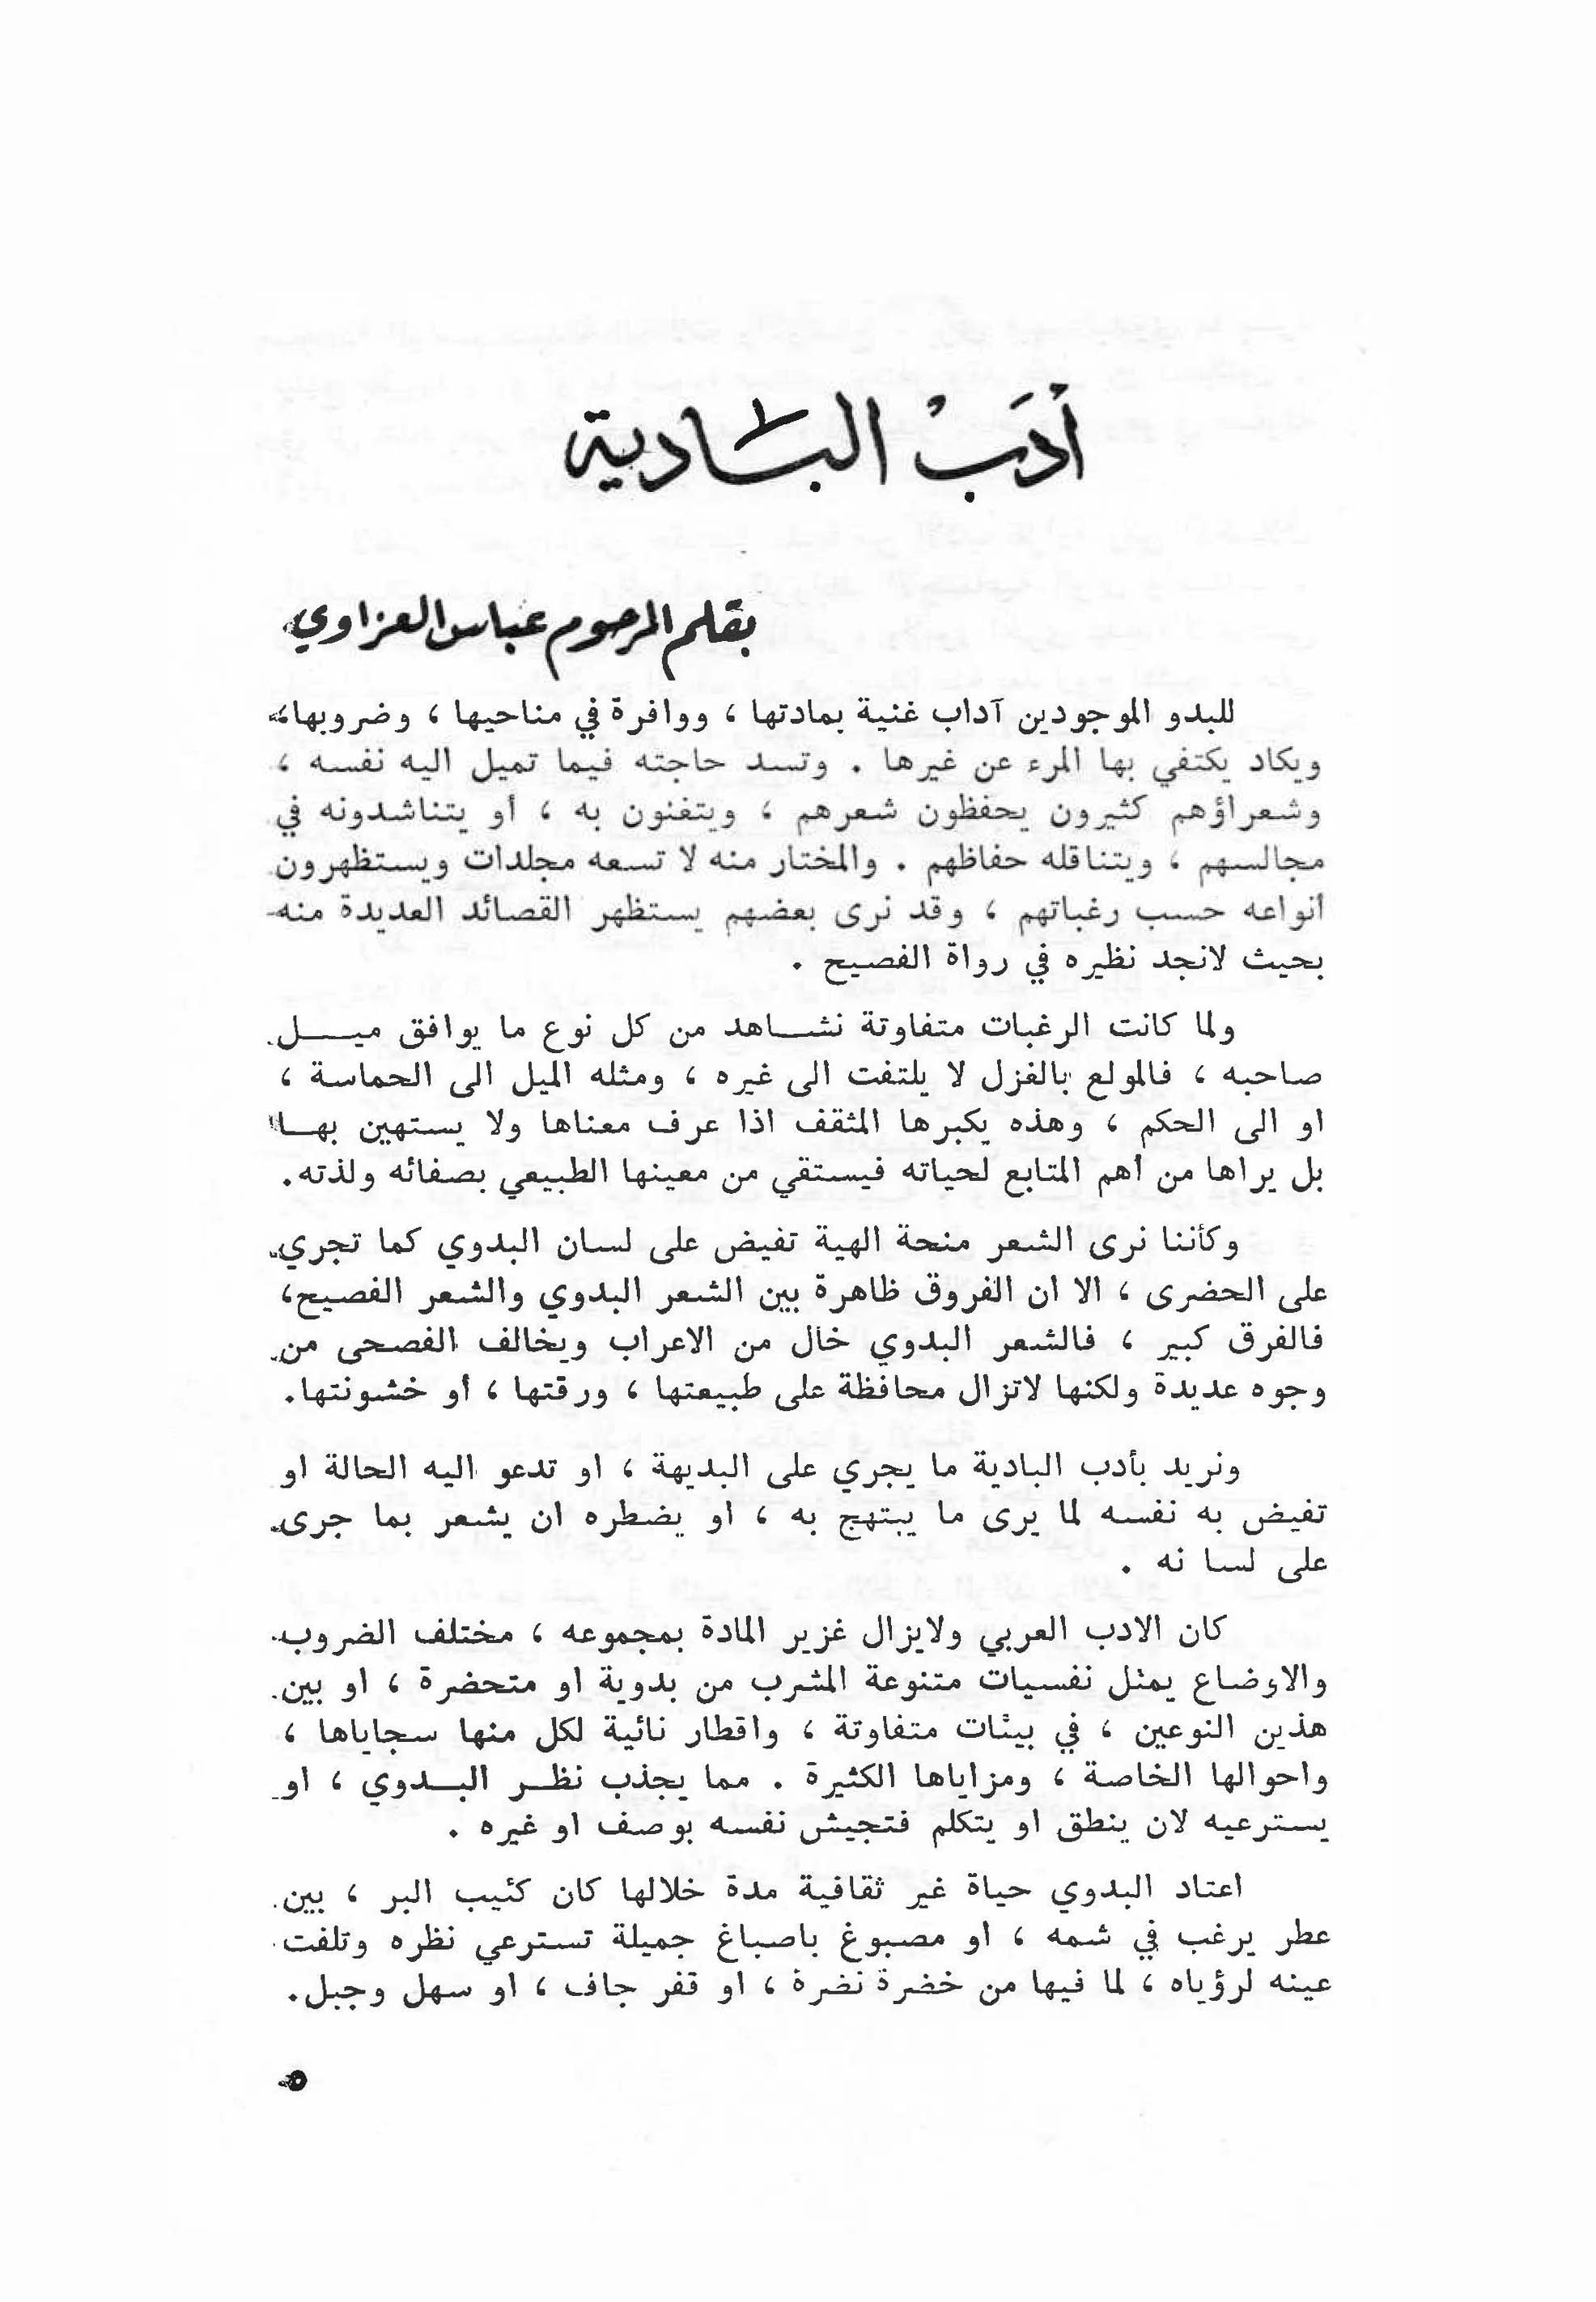 أدَبْ البَادية
بقلم المرحوم عباس العزاوي
للبدو الموجودين آداب غنية بمادتها ، ووافرة في مناحيها ، وضروبها،
ويكاد يكتفي بها المرء عن غيرها . وتسد حاجته فيما تميل اليه نفسه ،
وشعراؤهم كثيرون يحفظون شعرهم ، ويتغنون به ، أو يتناشدونه في
مجالسهم ، ويتناقله حفاظهم . والمختار منه لا تسعه مجلدات ويستظهرون
أنواعه حسب رغباتهم ، وقد نرى بعضهم يستظهر القصائد العديدة منه
بحيث لانجد نظيره في رواة الفصيح .
ولما كانت الرغبات متفاوتة نشاهد من كل نوع ما يوافق ميل
صاحبه ، فالمولع بالغزل لا يلتفت الى غيره ، ومثله الميل الى الحماسة ،
او الى الحكم ، وهذه يكبرها المثقف اذا عرف معناها ولا يستهين بها
بل يراها من أهم المتابع لحياته فيستقي من معينها الطبيعي بصفائه ولذته.
وكأننا نرى الشعر منحة الهية تفيض على لسان البدوي كما تجري
على الحضرى ، الا ان الفروق ظاهرة بين الشعر البدوي والشعر الفصيح،
فالفرق كبير ، فالشعر البدوي خال من الاعراب ويخالف الفصحى من
وجوه عديدة ولكنها لاتزال محافظة على طبيعتها ، ورقتها ، أو خشونتها.
ونريد بأدب البادية ما يجري على البديهة ، او تدعو اليه الحالة او
تفيض به نفسه لما يرى ما يبتهج به ، او يضطره ان يشعر بما جرى
على لسا نه .
كان الادب العربي ولايزال غزير المادة بمجموعه ، مختلف الضروب
والاوضاع يمثل نفسيات متنوعة المشرب من بدوية او متحضرة ، او بين
هذين النوعين ، في بيئات متفاوتة ، واقطار نائية لكل منها سجاياها ،
واحوالها الخاصة ، ومزاياها الكثيرة . مما يجذب نظر البدوي ، او
يسترعيه لان ينطق او يتكلم فتجيش نفسه بوصف او غيره .
اعتاد البدوي حياة غير ثقافية مدة خلالها كان كئيب البر ، بين
عطر يرغب في شمه ، او مصبوغ باصباغ جميلة تسترعي نظره وتلفت
عينه لرؤياه ، لما فيها من خضرة نضرة ، او قفر جاف ، او سهل وجبل.
٥